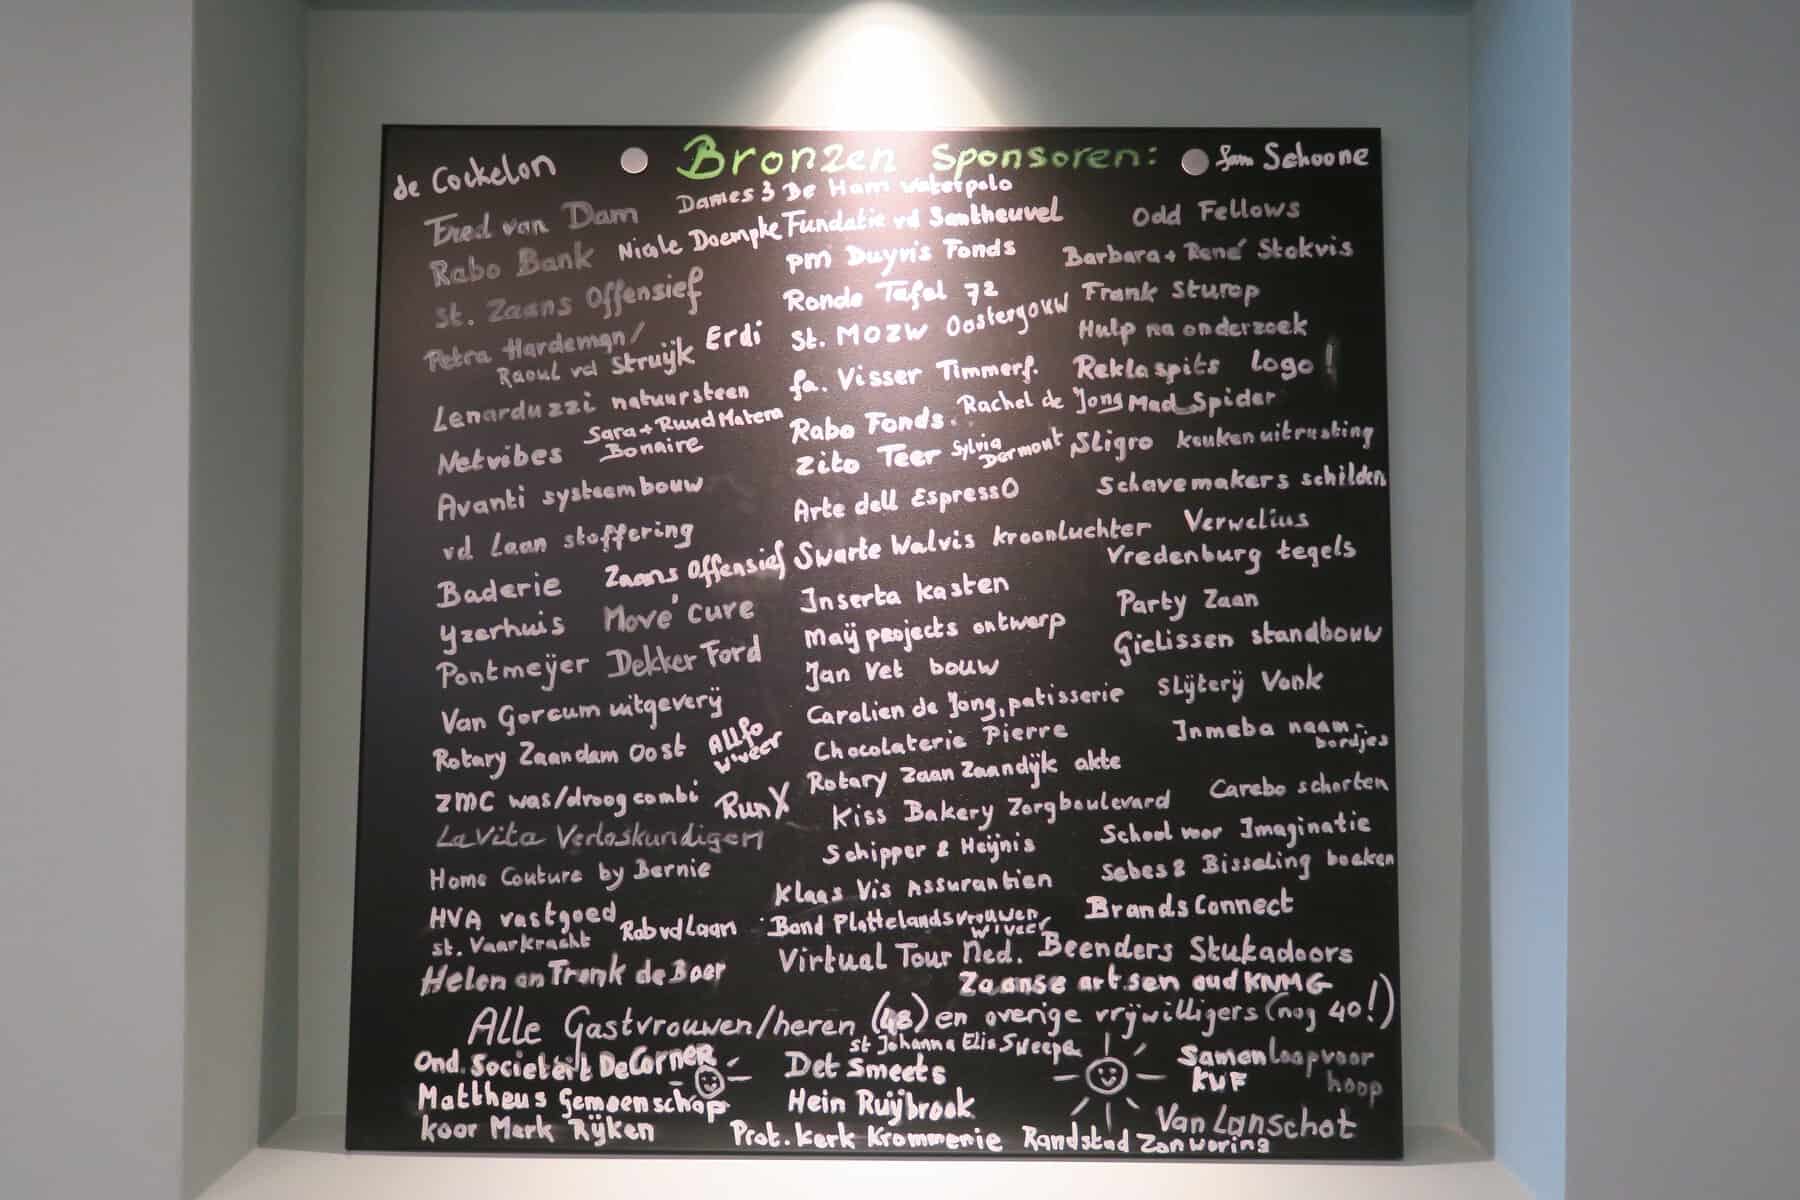 Bronzen sponsoren:
de Cockelon
Fred van Dam
Rabo Bank
St. Zaans Offensief
Petra Hardeman/
Raoul vd Struijk
Erdi
Lenarduzzi natuursteen
Netvibes
Sara + Ruud Matera
Bonaire
Avanti systeembouw
vd Laan stoffering
Baderie
Zaans Offensief
Yzerhuis
Move'Cure
Pontmeÿer
Dekker Ford
Van Gorcum uitgeverÿ
Rotary Zaandam Oost
ZMC was/droogcombi
RunX
LaVita Verloskundigen
Home Couture by Bernie
HVA vastgoed
st. Vaarkracht
Rob vd Laan
Helen en Frank de Boer
Dames 3 De Ham waterpolo
Nicole Doempke
Fundatie vd Santheuvel
pm Duyvis Fonds
Ronde Tafel 72
St. MOZW Oostergouw
fa. Visser Timmerf.
Rabo Fonds.
Rachel de Jong
Zito Teer
Sylvia
Dermont
Arte dell Espresso
Swarte Walvis kroonluchter
Inserta kasten
Maÿ projects ontwerp
Jan Vet bouw
Carolien de Jong, patisserie
Chocolaterie Pierre
Rotary Zaan Zaandÿk akte
Kiss Bakery Zorgboulevard
Schipper & Heÿnis
Klaas Vis Assurantien
Bond Plattelandsvrouwen
W'veer
Virtual Tour Ned.
Sam Schoone
Odd Fellows
Barbara + René Stokvis
Frank Sturop
Hulp na onderzoek
Reklaspits logo!
Mad Spider
Sligro keukenuitrusting
Schavemakers schilden
Verwelius
Vredenburg tegels
Party Zaan
Gielissen standbouw
Slÿterÿ Vonk
Inmeba naam-
bordjes
Carebo schorten
School voor Imaginatie
Sebes & Bisseling boeken
BrandsConnect
Beenders Stukadoors
Zaanse artsen oud KNMG
Alle Gastvrouwen/heren (48) en overige vrÿwilligers (nog 40!)
st Johanna Elis
Ond. Societeit DeCorner
Mattheus Gemeenschap
Koor Mark Rÿken
Det Smeets
Hein Ruÿbrook
Prot. Kerk Krommenie
Samenloop voor
hoop
KWF
Van Lanschot
Randstad Zonwering